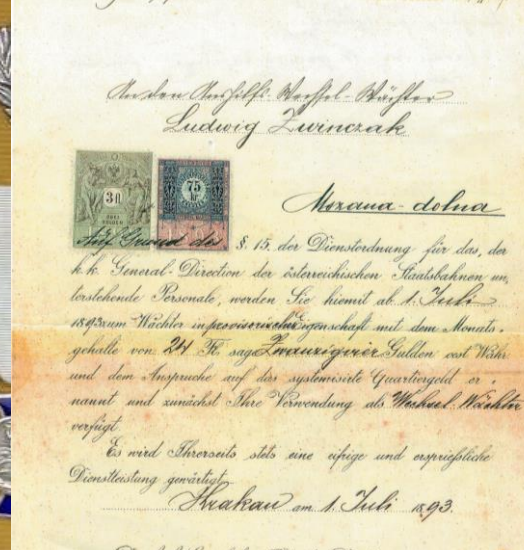 An den Aushilfs-Wechsel-Wächter
Ludwig Zwinczak
3 fl
75
kr
Mszana-dolna
Auf Grund des §. 15. der Dienstordnung für das, der
k.k. General-Direction der österreichischen Staatsbahnen un,
terstehende Personale, werden Sie hiemit ab 1. Juli
1893 zum Wächter in provisorischer Eigenschaft mit dem Monats-
gehalte von 24 Fl. sage Zwanzigvier Gulden öst Währ
und dem Anspruche auf das systemisirte Quartiergeld er,
nannt und zunächst Ihre Verwendung als Wechsel-Wächter
verfügt
Es wird Ihrerseits stets eine eifrige und erspriessliche
Dienstleistung gewärtigt.
Krakau am 1. Juli 1893.